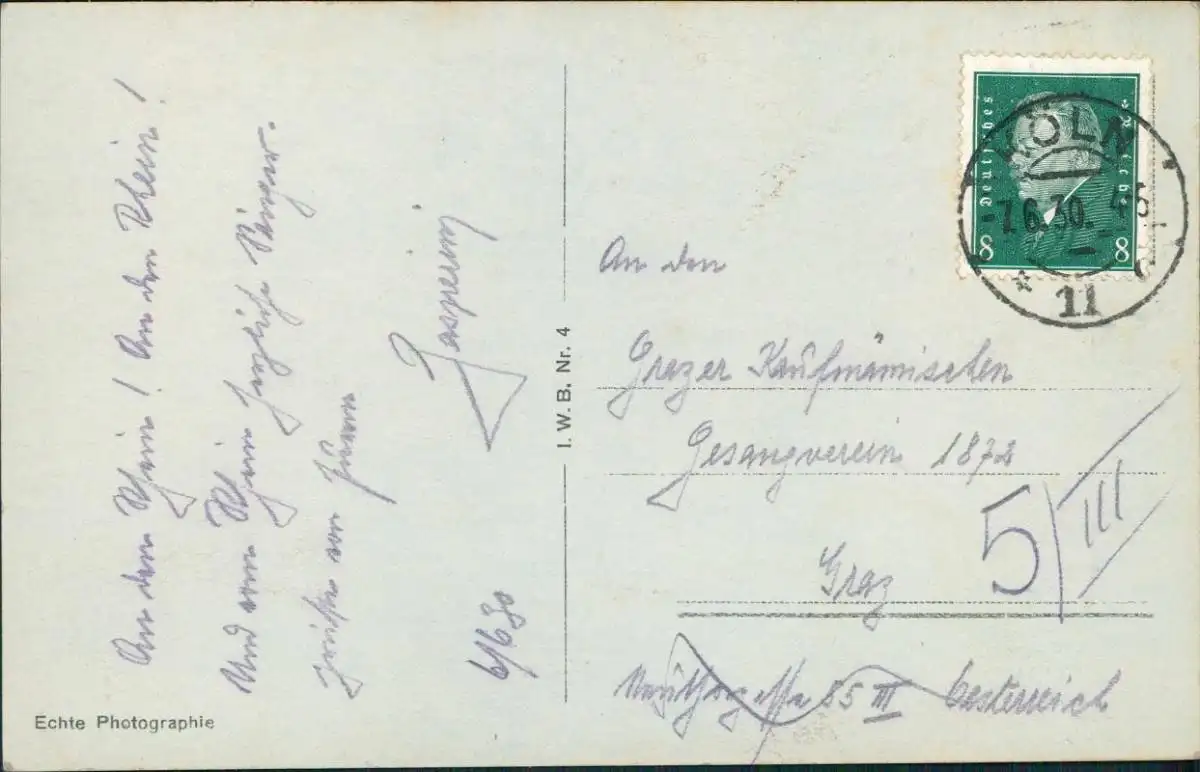 An den Rhein! An den Rhein!
Und vom Rhein herzliche Sänger-
grüße von Ihrem
6/6 30
I. W. B. Nr. 4
Echte Photographie
Deutsches Reich
8 8
KÖLN
7.6.30.
11
An den
Grazer Kaufmännischen
Gesangverein 1872
Graz
5/III
III Oesterreich